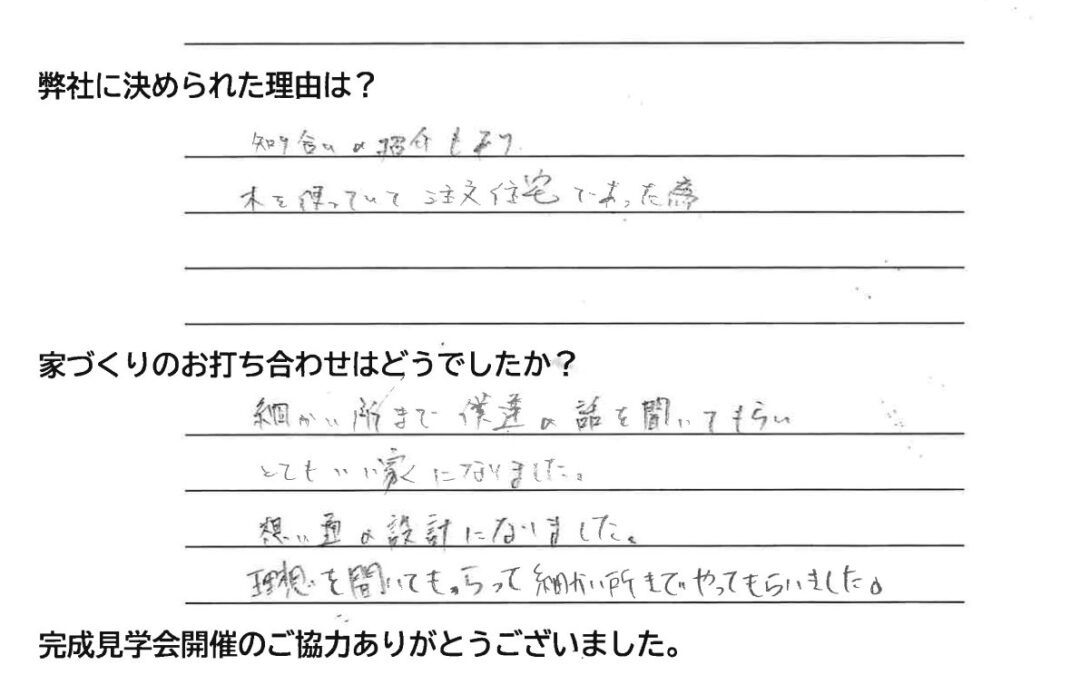 弊社に決められた理由は？
知り合いの紹介もあり
木を使っていて注文住宅であった為
家づくりのお打ち合わせはどうでしたか？
細かい所まで僕達の話を聞いてもらい
とてもいい家になりました。
想い通の設計になりました。
理想を聞いてもらって細かい所までやってもらいました。
完成見学会開催のご協力ありがとうございました。